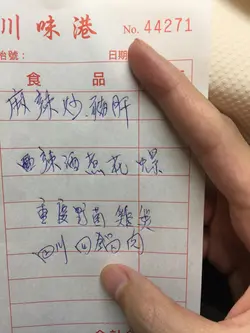 川味港
No. 44271
號： 日期
食 品
麻辣炒豬肝
辣酒煮花螺
重慶野菌雞煲
四川回鍋肉